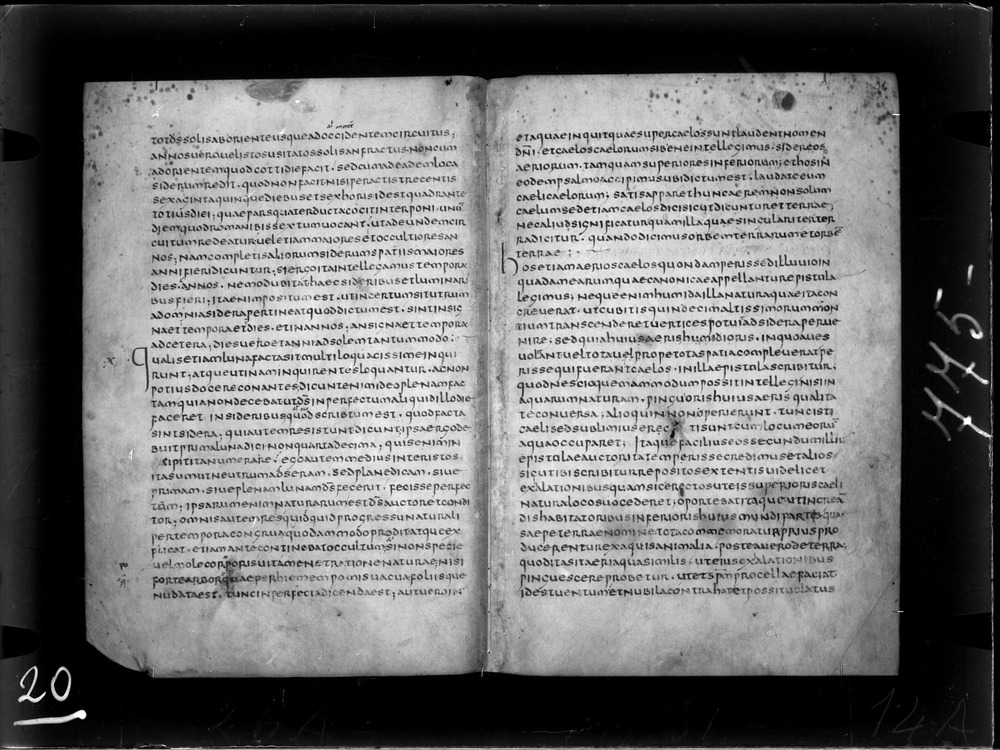 al omnes
totos solis ab oriente usque ad occidentem circuitus;
annos uero uel istos usitatos solis anfractus non cum
ad orientem quod cottidie facit. sed cum ad eadem loca
siderum redit. quod non facit nisi peractis trecentis
sexaginta quinque diebus et sex horis id est quadrante
totius diei; quae pars quater ducta cogit interponi unum
diem quod romani bissextum uocant. ut ad eundem cir
cuitum redeatur uel etiam maiores et occultiores an
nos; Nam completis aliorum siderum spatiis maiores
anni fieri dicuntur; si ergo ita intellegamus tempora
dies. annos. nemo dubitat haec sideribus et luminari
bus fieri; Ita enim positum est. ut incertum sit utrum
ad omnia sidera pertineat quod dictum est. sint in sig
na et tempora et dies. et in annos; an signa et tempora
ad cetera; dies uero et anni ad solem tantummodo:
x
qualis etiam luna facta sit multi loquacissime inqui
runt; atque utinam inquirentes loquantur. ac non
potius docere conantes; dicunt enim ideo plenam fac
tam quia non decebat ut d̄s inperfectum aliquid illo die
faceret in sideribus quo scribtum est. quod facta
sint sidera; qui autem resistunt dicunt; ipsa ergo de
buit prima luna dici. non quarta decima; quis enim in
cipit ita numerare; ego autem medius inter istos
ita sum ut neutrum adseram. sed plane dicam. siue
primam. siue plenam lunam d̄s fecerit. fecisse perfec
tam; ipsarum enim naturarum est d̄s auctor et condi
tor; omnis autem res quidquid progressu naturali
per tempora congrua quodammodo prodit atque ex
plicat. etiam ante continebat occultum; si non specie
uel mole corporis sui tamen et ratione naturae; nisi
forte arbor quae per hiemem pomis uacua foliisque
nudata est. tunc inperfecta dicenda est; aut uero in
et aquae inquit quae super caelos sunt laudent nomen
dn̄i. et caelos caelorum si bene intellegimus. sidereos
aeriorum. tamquam superiores inferiorum; et hos in
eodem psalmo accipimus ubi dictum est. laudate eum
caeli caelorum; satis apparet hunc aerem non solum
caelum sed etiam caelos dici sicut dicuntur et terrae;
nec aliud significatur quam illa quae singulariter ter
ra dicitur. quando dicimus orbem terrarum et orbem
terrae:
hos etiam aerios caelos quondam perisse diluuio in
quadam earum quae canonicae appellantur epistula
legimus; neque enim humida illa natura quae ita con
creuerat. ut cubitis quindecim altissimorum mon
tium transcenderet uertices potuit ad sidera perue
nire; sed quia huius aeris humidioris. in quo aues
uolant uel tota uel prope tota spatia compleuerat pe
risse qui fuerant caelos. in illa epistula scribitur;
quod nescio quemammodum possit intellegi nisi in
aquarum naturam. pinguioris huius aeris qualita
te conuersa; alioquin non perierunt. tunc isti
caeli sed sublimius erecti sunt cum locum eorum
aqua occuparet; Itaque facilius eos secundum illius
epistulae auctoritatem perisse credimus et alios
sicut ibi scribitur repositos extentis uidelicet
exalationibus quam sic erectos ut eis superioris caeli
natura locos suo cederet; oportebat itaque ut in crean
dis habitatoribus inferioris huius mundi partis quae
saepe terrae nomine tota commemoratur prius pro
ducerentur ex aquis animalia. postea uero de terra;
quod ita sit aeri aqua similis. ut eius exalationibus
pinguescere probetur. ut et spm procellae faciat
id est uentum et nubila contrahat et possit uolatus
20
775-
14A